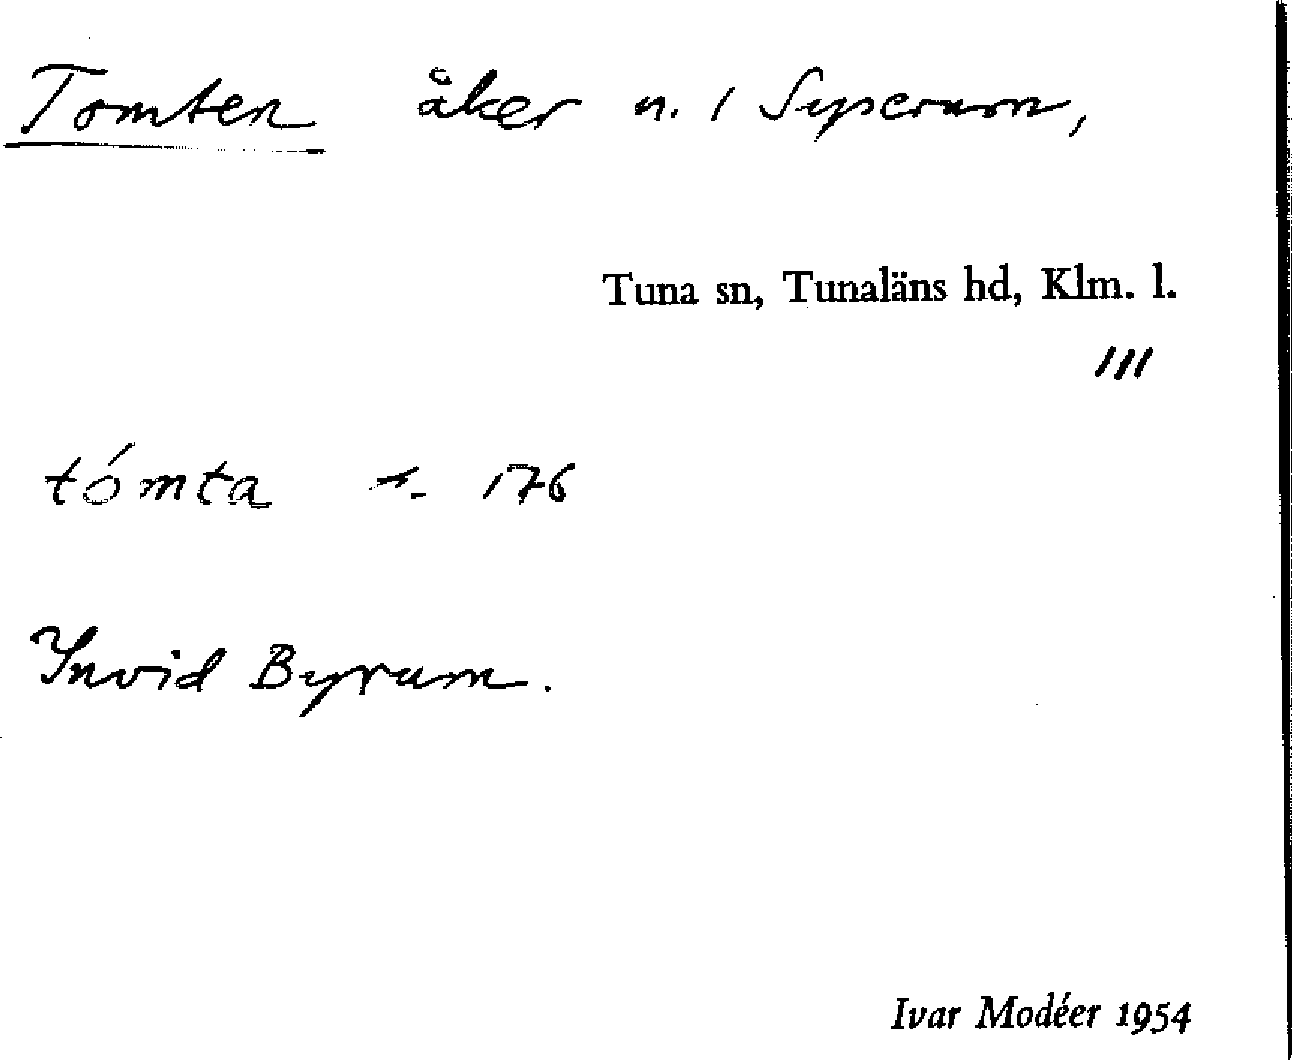 Tomten åker n. 1 Syserum,
Tuna sn, Tunaläns hd, Klm. l.
III
tómta 176
Invid Byrum.
Ivar Modéer 1954